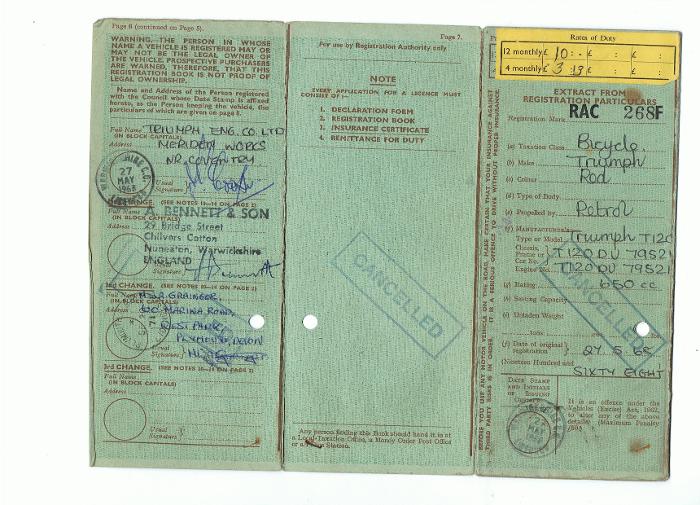 Page 6 (continued on Page 5).
WARNING. THE PERSON IN WHOSE
NAME A VEHICLE IS REGISTERED MAY OR
MAY NOT BE THE LEGAL OWNER OF
THE VEHICLE. PROSPECTIVE PURCHASERS
ARE WARNED, THEREFORE, THAT THIS
REGISTRATION BOOK IS NOT PROOF OF
LEGAL OWNERSHIP.
Name and Address of the Person registered
with the Council whose Date Stamp is affixed
hereto, as the Person keeping the vehicle, the
particulars of which are given on page 8.
Full Name TRIUMPH ENG. CO. LTD
(IN BLOCK CAPITALS)
Address MERIDEN WORKS
NR. COVENTRY
27
MAY
1968
Usual
Signature
CHANGE. (SEE NOTES 10-14 ON PAGE 2)
Full Name A. BENNETT & SON
27 Bridge Street
Address Chilvers Coton
Nuneaton, Warwickshire
ENGLAND
Usual
Signature
2nd CHANGE. (SEE NOTES 10-14 ON PAGE 2)
Full Name GRAINGER.
(IN BLOCK CAPITALS)
Address MARINA ROAD,
WEST PARK,
PLYMOUTH, DEVON
Usual
Signature
3rd CHANGE. (SEE NOTES 10-14 ON PAGE 2)
Full Name
(IN BLOCK CAPITALS)
Address
Usual
Signature
Page 7.
For use by Registration Authority only
NOTE
EVERY APPLICATION FOR A LICENCE MUST
CONSIST OF:-
1. DECLARATION FORM
2. REGISTRATION BOOK
3. INSURANCE CERTIFICATE
4. REMITTANCE FOR DUTY
CANCELLED
Any person finding this Book should hand it in at
a Local Taxation Office, a Money Order Post Office
or a Police Station.
BEFORE YOU USE ANY MOTOR VEHICLE ON THE ROAD, MAKE CERTAIN THAT YOUR INSURANCE AGAINST
THIRD PARTY RISKS IS IN ORDER. IT IS A SERIOUS OFFENCE TO DRIVE WITHOUT PROPER INSURANCE.
Rates of Duty
12 monthly £ 10 : - £ : £ :
4 monthly £ 3 : 13 £ : £ :
EXTRACT FROM
REGISTRATION PARTICULARS
Registration Mark RAC 268F
(a) Taxation Class Bicycle.
(b) Make Triumph
(c) Colour Red
(d) Type of Body
(e) Propelled by Petrol
(f) Manufacturer's
Type or Model Triumph T120
Chassis,
Frame or
Car No. T120 DU 79521
Engine No. T120 DU 79521
(g) Rating 650 cc
(h) Seating Capacity
(i) Unladen Weight
tons cwt
(j) Date of original
registration 27.5.68
(Nineteen Hundred and
SIXTY EIGHT
CANCELLED
DATE STAMP
AND INITIALS
OF ISSUING
OFFICER
27
MAY
1968
It is an offence under the
Vehicles (Excise) Act, 1962,
to alter any of the above
details: (Maximum Penalty
£50)